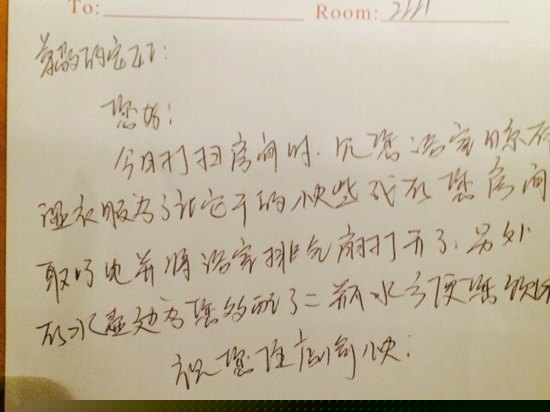 To: Room:
尊敬的宾客:
您好!
今日打扫房间时,见您浴室晾有
湿衣服为了让它干的快些我在您房间
取了电并将浴室排气扇打开了,另外
在水壶处为您多配了二瓶水方便您饮
祝您住店愉快!